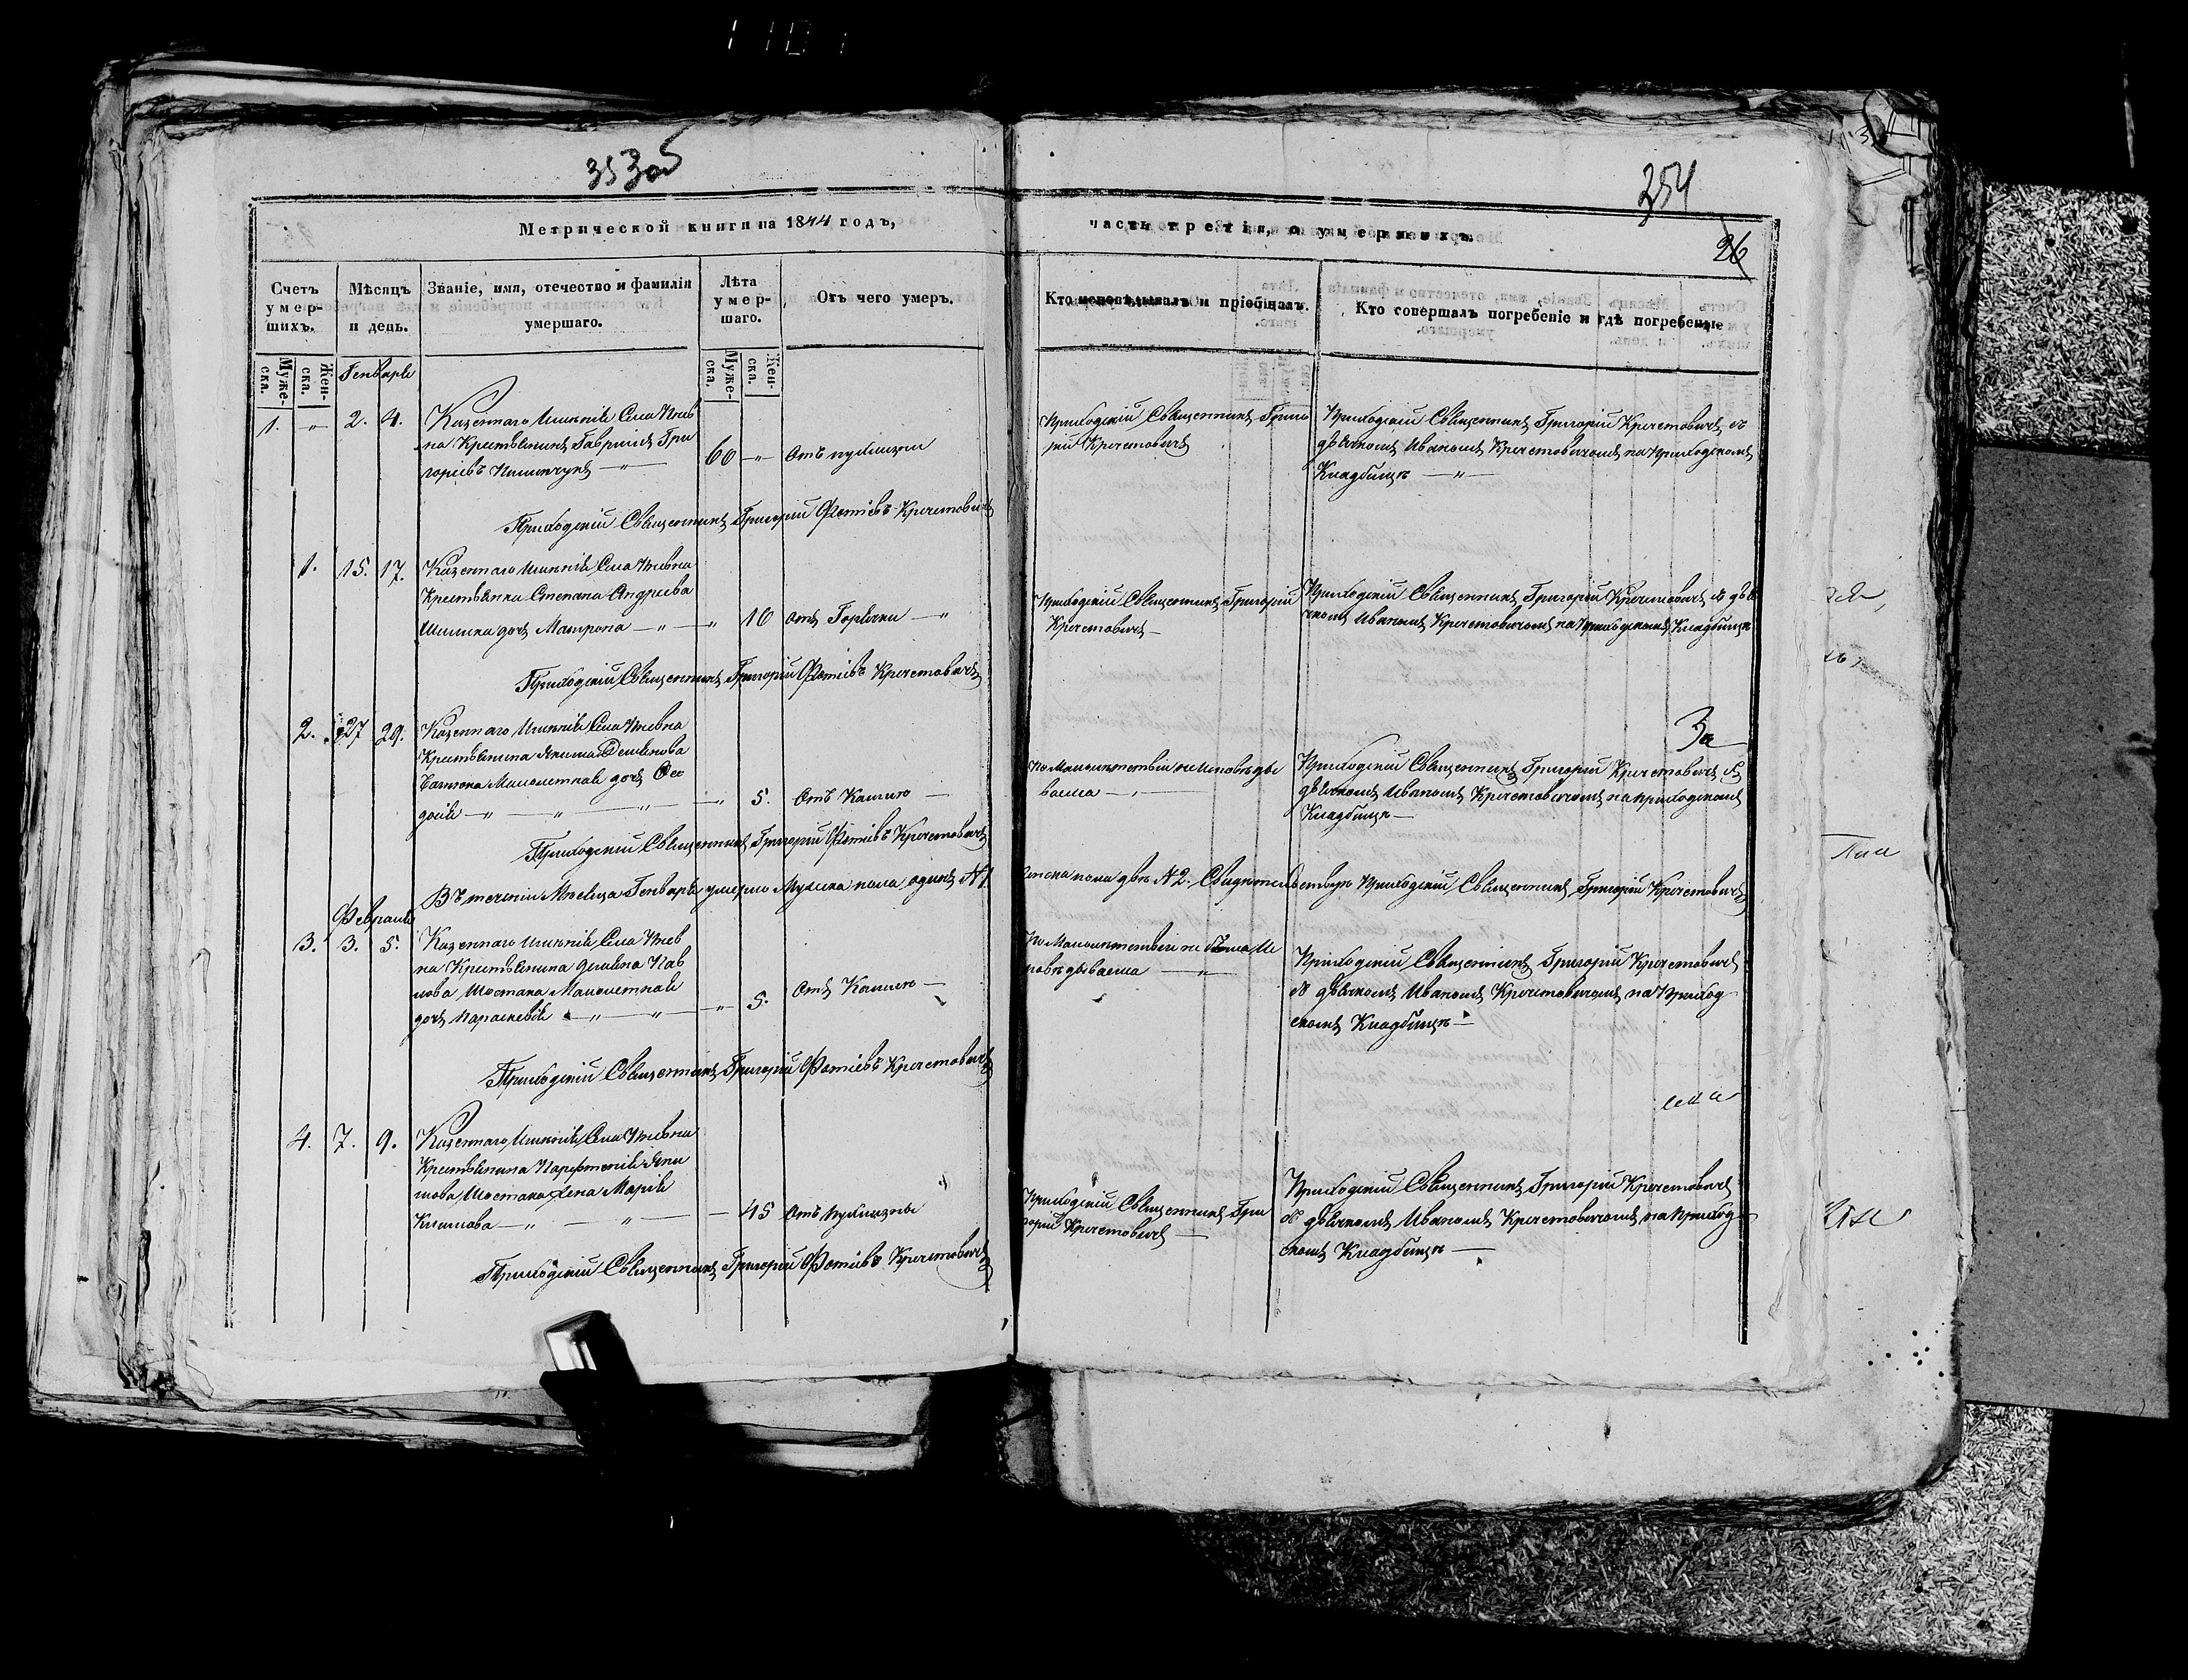 353об
354
26
Метрической книги на 1844 годъ,
часть третія, о умершихъ.
Счетъ умер-шихъ.
Мѣсяцъ и день.
Званіе, имя, отечество и фамилія умершаго.
Лѣта умер-шаго.
Отъ чего умеръ.
Кто исповѣдывалъ и пріобщалъ.
Кто совершалъ погребеніе и гдѣ погребены
Муже-ска.
Жен-ска.
Муже-ска.
Жен-ска.
Генваря
1. " 2. 4. Казеннаго Имѣнія Села
на Крестьянинъ Гавриилъ Гри
горіевъ 60 "
Приходскій Священникъ Григо
рій Кречетовичъ
Приходскій Священникъ Григорій Кречетовичъ съ
дьячкомъ Иваномъ Кречетовичомъ на Приходскомъ
Кладбищѣ "
Приходскій Священникъ Григорій Фотіевъ Кречетовичъ
1. 15. 17. Казеннаго Имѣнія Села
Крестьянина Степана Андреева
дочь Матрона " " 10 отъ Горячки "
Приходскій Священникъ Григорій
Кречетовичъ
Приходскій Священникъ Григорій Кречетовичъ съ дья
чкомъ Иваномъ Кречетовичомъ на Приходскомъ Кладбищѣ
Приходскій Священникъ Григорій Фотіевъ Кречетовичъ
2. 27 29. Казеннаго Имѣнія Села
Крестьянина Якима Демянова
Малолетная дочь Фео
досія " " " " 5. Отъ Кашлю
По Малолѣтствію не Исповѣды
валась
Приходскій Священникъ Григорій Кречетовичъ съ
дьячкомъ Иваномъ Кречетовичомъ на приходскомъ
Кладбищѣ
За
Приходскій Священникъ Григорій Фотіевъ Кречетовичъ
Въ теченіи Мѣсяца Генваря умерло Мужска пола одинъ №1.
женска пола двѣ №2. Свидѣтельствую Приходскій Священникъ Григорій Кречетовичъ
Февраля
3. 3. 5. Казеннаго Имѣнія Села
на Крестьянина Демяна Пав
лова Шостака Малолетная
дочь Параскевія " " " 5. Отъ Кашлю
По Малолѣтствію не была Ис
повѣдываема "
Приходскій Священникъ Григорій Кречетовичъ
съ дьячкомъ Иваномъ Кречетовичомъ на Приход
скомъ Кладбищѣ
Приходскій Священникъ Григорій Фотіевъ Кречетовичъ
4. 7. 9. Казеннаго Имѣнія Села
Крестьянина Парфтенія Яки
мова Шостака жена Марія
Климова " " 45
Приходскій Священникъ Гри
горій Кречетовичъ
Приходскій Священникъ Григорій Кречетовичъ
съ дьячкомъ Иваномъ Кречетовичомъ на Приход
скомъ Кладбищѣ
Приходскій Священникъ Григорій Фотіевъ Кречетовичъ